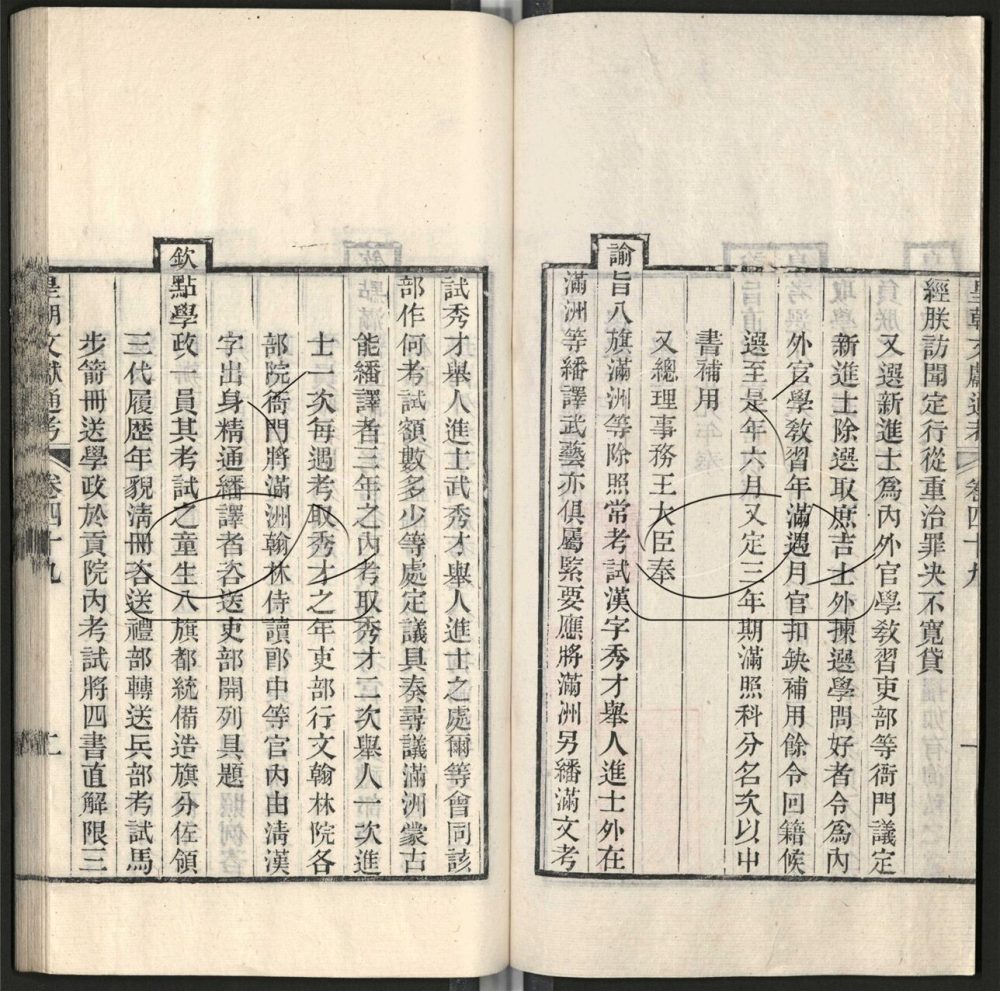 皇朝文獻通考 卷四十九 一
經朕訪聞定行從重治罪決不寬貸
又選新進士爲內外官學教習吏部等衙門議定
新進士除選取庶吉士外揀選學問好者令爲內
外官學教習年滿遇月官扣缺補用餘令回籍候
選至是年六月又定三年期滿照科分名次以中
書補用
又總理事務王大臣奉
諭旨八旗滿洲等除照常考試漢字秀才舉人進士外在
滿洲等繙譯武藝亦俱屬緊要應將滿洲另繙滿文考
試秀才舉人進士武秀才舉人進士之處爾等會同該
部作何考試額數多少等處定議具奏尋議滿洲蒙古
能繙譯者三年之內考取秀才二次舉人一次進
士一次每遇考取秀才之年吏部行文翰林院各
部院衙門將滿洲翰林侍讀郎中等官內由淸漢
字出身精通繙譯者咨送吏部開列具題
欽點學政一員其考試之童生八旗都統備造旗分佐領
三代履歷年貌淸冊咨送禮部轉送兵部考試馬
步箭冊送學政於貢院內考試將四書直解限三
皇朝文獻通考 卷四十九